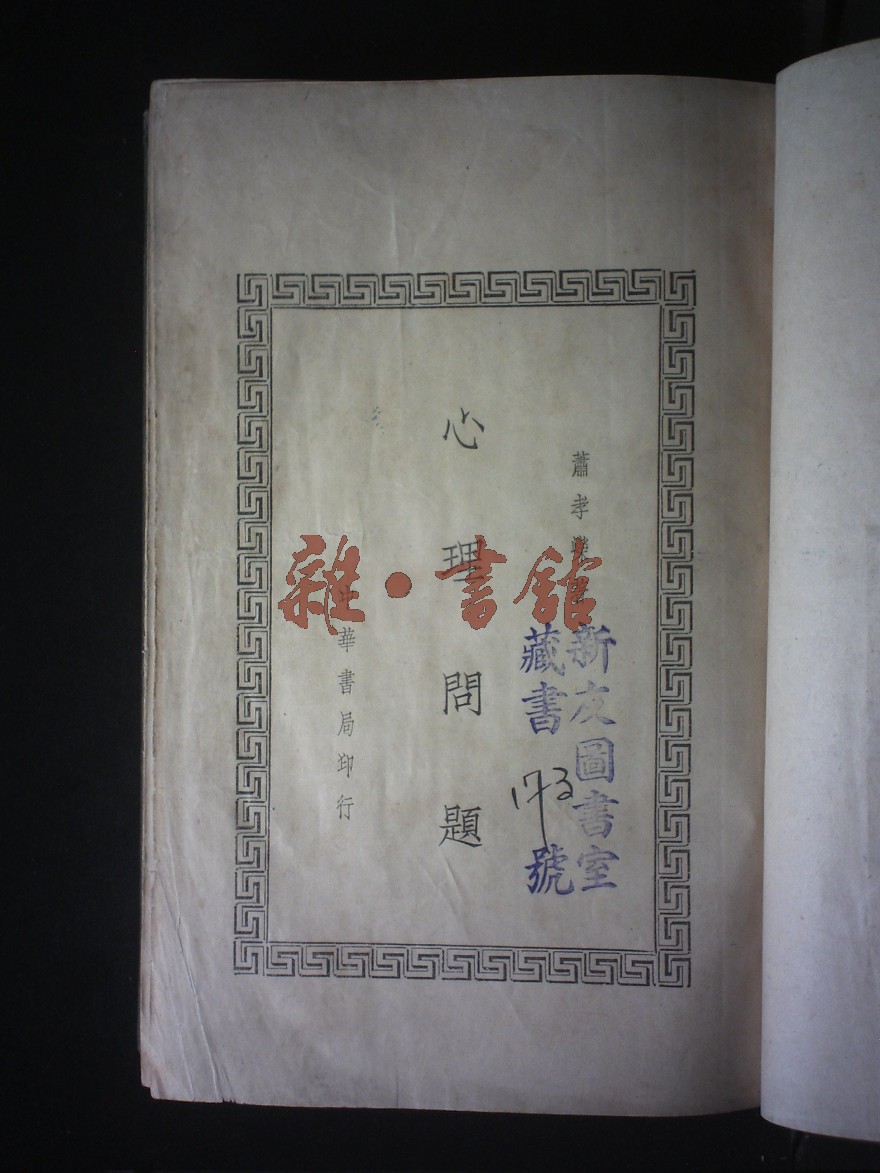 蕭孝
心理問題
華書局印行
新友圖書室
藏書 173 號
雜·書館